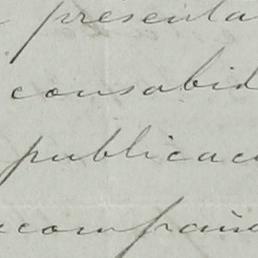 presenta
consabid
publicac
compaña